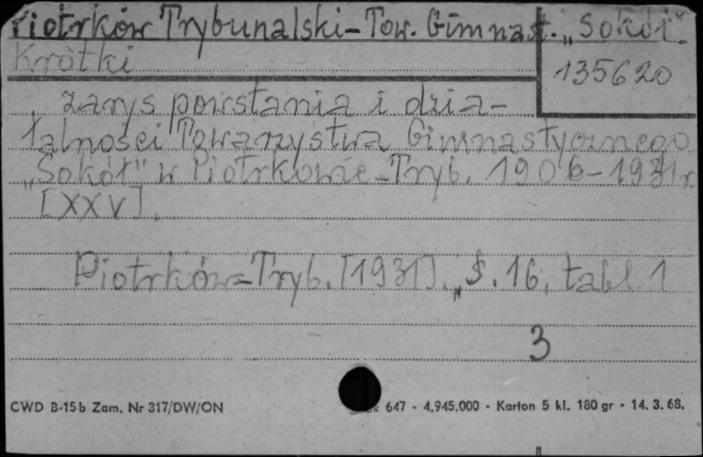 Piotrków Trybunalski - Tow. Gimnast. „Sokół”.
Krótki
135620
zarys powstania i dzia-
łalności Towarzystwa Gimnastycznego
„Sokół" w Piotrkowie-Tryb. 1906-1931 r
[XXV].
Piotrków-Tryb. [1931]. „S. 16, tabl 1
3
CWD B-15b Zam. Nr 317/DW/ON
647 - 4.945.000 - Karton 5 kl. 180 gr - 14. 3. 68.